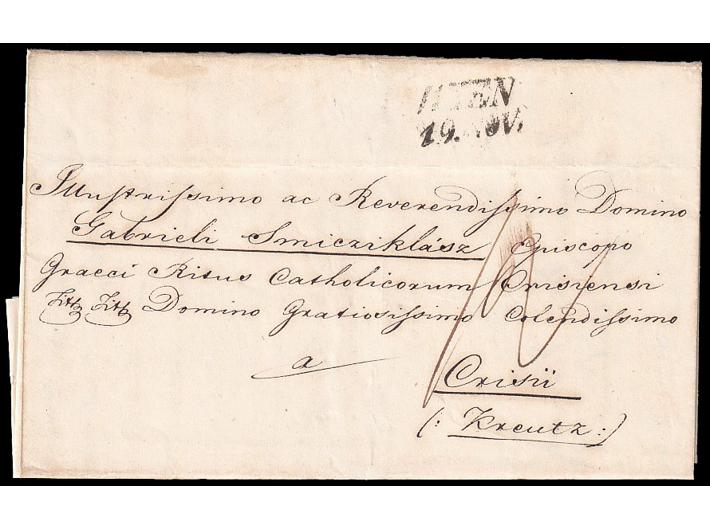 WIEN
19. NOV.
Illustrissimo ac Reverendissimo Domino
Gabrieli Smicziklász Episcopo
Graeci Ritus Catholicorum Crisiensi
Titt Titt Domino Gratiosissimo Colendissimo
a
Crisii
(: Kreutz :)